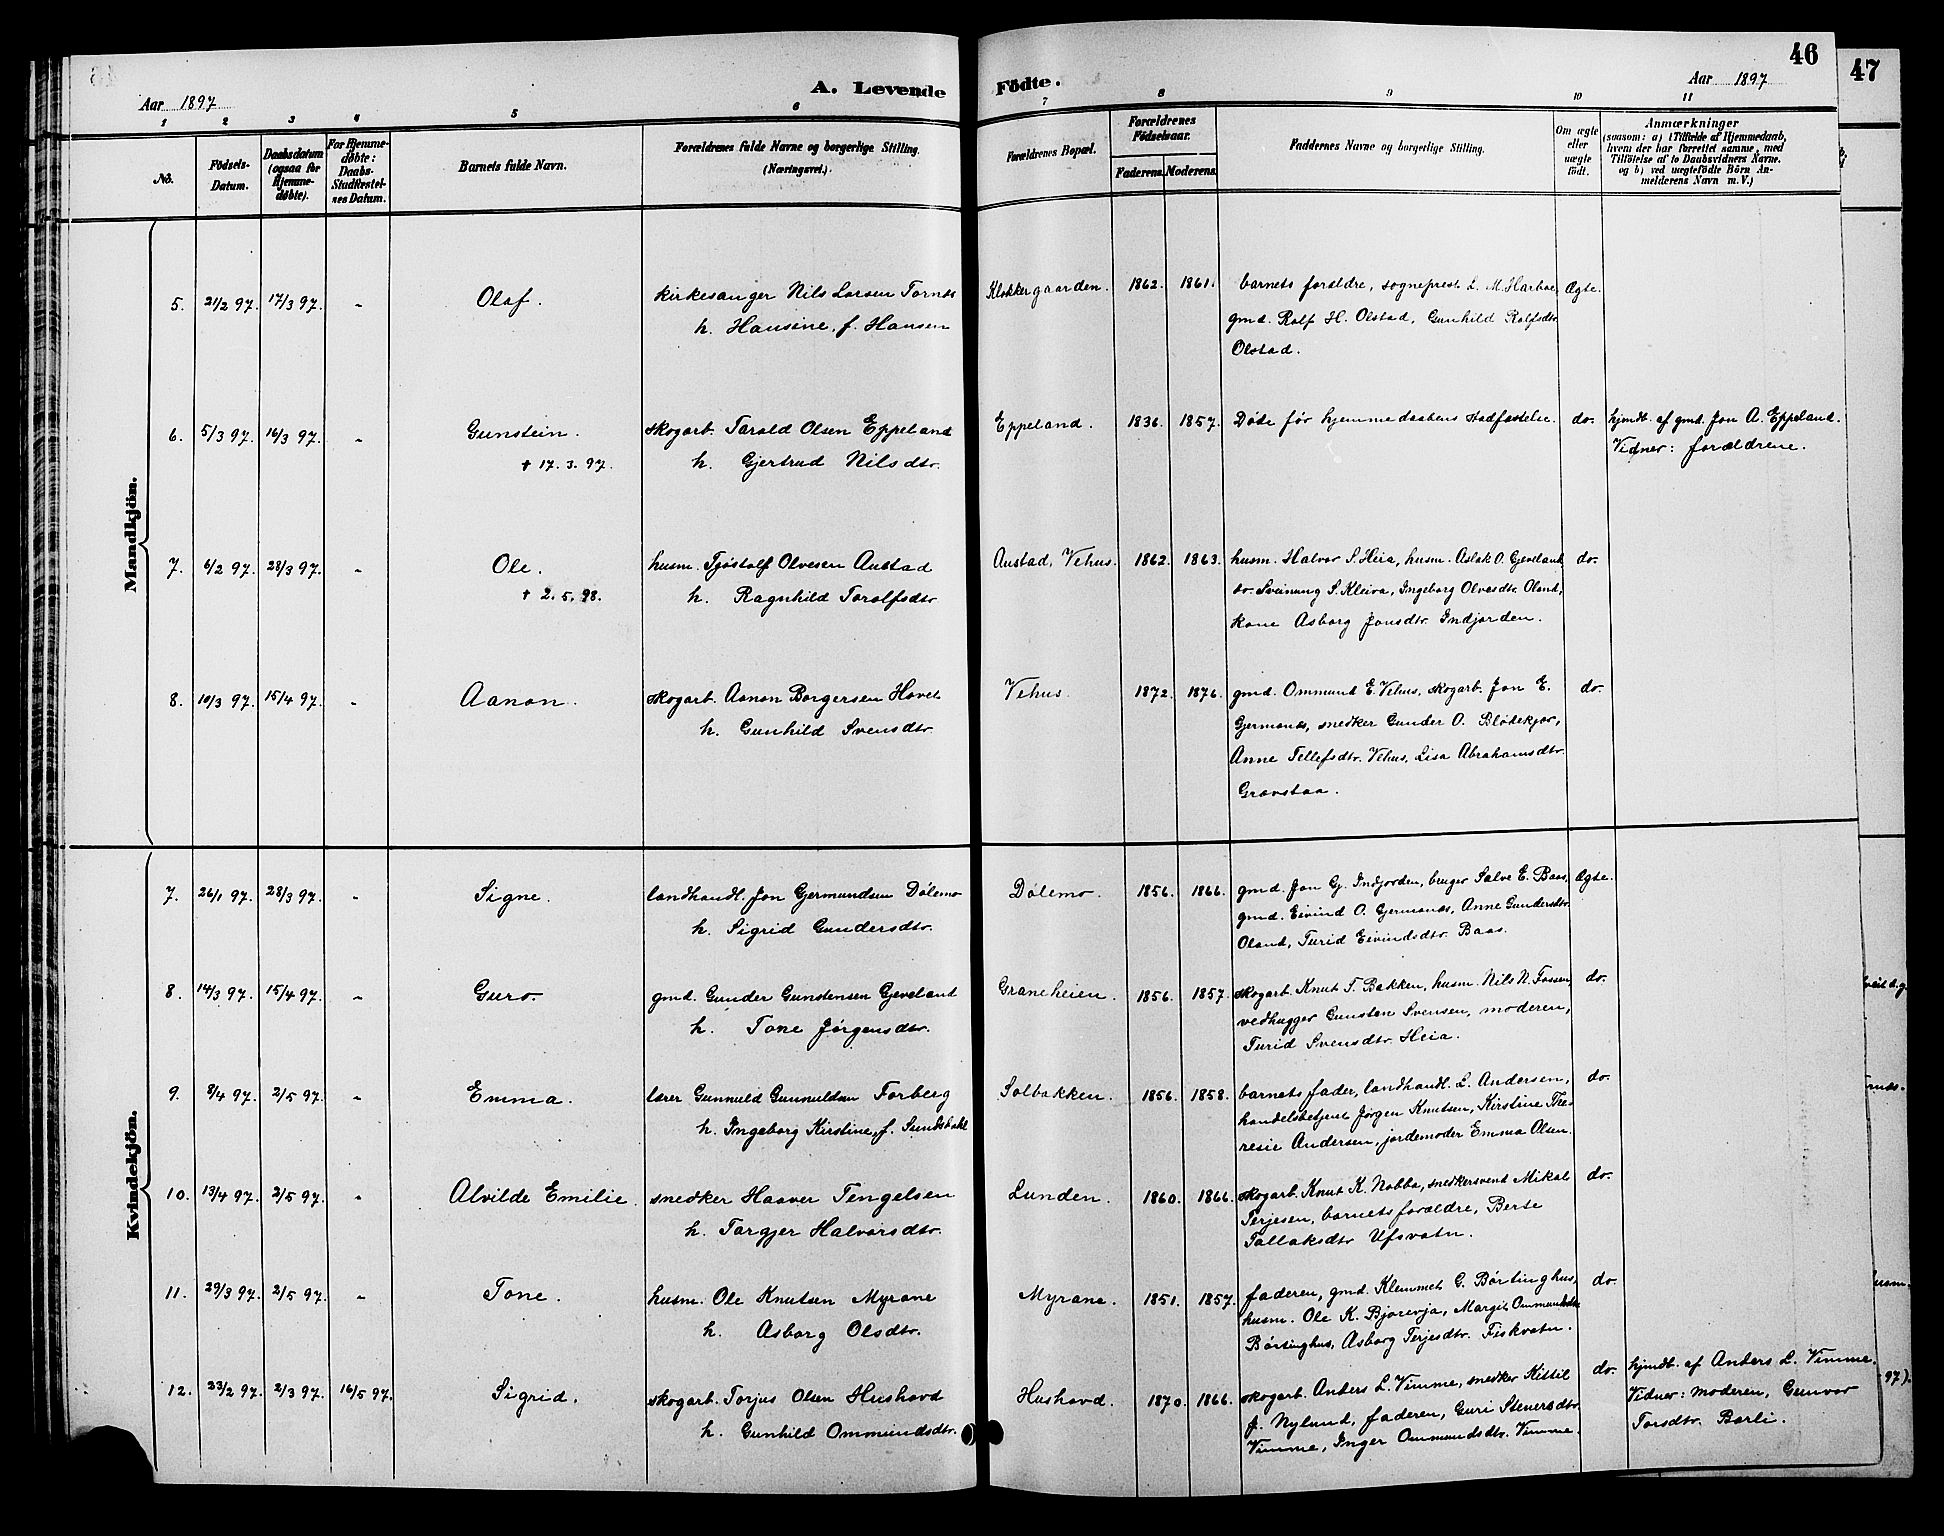 46
47
A. Levende Födte.
Aar 1897
Aar 1897
1 2 3 4 5 6 7 8 9 10 11
No.
Födsels-Datum.
Daabsdatum (ogsaa for Hjemme-døbte).
For Hjemme-døbte: Daabs-Stadfæstel-nes Datum.
Barnets fulde Navn.
Forældrenes fulde Navne og borgerlige Stilling. (Næringsvei.)
Forældrenes Bopæl.
Forældrenes Födselsaar.
Faderens. Moderens.
Faddernes Navne og borgerlige Stilling.
Om ægte eller uægte födt.
Anmærkninger
(saasom: a) i Tilfælde af Hjemmedaab,
hvem der har forrettet samme, med
Tilföielse af to Daabsvidners Navne.
og b) ved uægtefödte Börn An-
melderens Navn m. V.)
Mandkjön.
5. 21/2 97. 17/3 97. " Olaf. kirkesanger Nils Larsen Tornes
h. Hansine, f. Hansen
Klokkergaarden. 1862. 1861. barnets forældre, sogneprest L. M. Harboe, Ægte.
gmd. Rolf H. Olstad, Gunhild Rolfsdtr.
Olstad.
6. 5/3 97. 16/3 97. " Gunstein. skogarb. Tarald Olsen Eppeland
† 17. 3. 97. h. Gjertrud Nilsdtr.
Eppeland. 1836. 1857. Døde før hjemmedaabens stadfæstelse. do. hjmdt. af gmd. Jon A. Eppeland.
Vidner: forældrene.
7. 6/2 97. 28/3 97. " Ole. husm. Tjøstolf Olvesen Austad
† 2. 5. 98. h. Ragnhild Torolfsdtr.
Austad, Vehus. 1862. 1863. husm. Halvor S. Heia, husm. Aslak O. Gjeveland, do.
do. Sveinung S. Kleiva, Ingeborg Olvesdtr. Oland,
kone Asborg Jonsdtr. Indjorden.
8. 10/3 97. 15/4 97. " Aanon. skogarb. Aanon Borgersen Hovet
h. Gunhild Svensdtr.
Vehus. 1872. 1876. gmd. Ommund E. Vehus, skogarb. Jon E. do.
Gjermonæs, snedker Gunder O. Bløtekjær,
Anne Tellefsdtr. Vehus, Lisa Abrahamsdtr.
Gravstaa.
Kvindekjön.
7. 26/1 97. 28/3 97. " Signe. landhandl. Jon Gjermundsen Dølemo
h. Sigrid Gundersdtr.
Dølemo. 1856. 1866. gmd. Jon Gj. Indjorden, bruger Salve E. Baas, Ægte.
gmd. Eivind O. Gjermonæs, Anne Gundersdtr.
Oland, Turid Eivindsdtr. Baas.
8. 14/3 97. 15/4 97. " Guro. gmd. Gunder Gunstensen Gjeveland
h. Tone Jørgensdtr.
Graneheien. 1856. 1857. skogarb. Knut T. Bakken, husm. Nils N. Fossen, do.
vedhugger Gunsten Svensen, moderen,
Turid Svensdtr. Heia.
9. 8/4 97. 2/5 97. " Emma. lærer Gunnuld Gunnuldsen Forberg
h. Ingeborg Kirstine, f. Sundsdahl
Solbakken. 1856. 1858. barnets fader, landhandl. L. Andersen, do.
handelsbetjent Jørgen Knutsen, Kirstine The-
resie Andersen, jordemoder Emma Olsen.
10. 13/4 97. 2/5 97. " Alvilde Emilie. snedker Haaver Tengelsen
h. Torgjer Halvorsdtr.
Lunden. 1860. 1866. skogarb. Knut K. Nobba, snedkersvend Mikal do.
Terjesen, barnets forældre, Berte
Tallaksdtr. Ufsvatn.
11. 29/3 97. 2/5 97. " Tone. husm. Ole Knutsen Myrane
h. Asborg Olsdtr.
Myrane. 1851. 1857. faderen, gmd. Klemmet G. Børtinghus, do.
husm. Ole K. Bjorevja, Margit Ommundsdtr.
Børtinghus, Asborg Terjesdtr. Fiskvatn.
12. 23/2 97. 2/3 97. 16/5 97. Sigrid. skogarb. Torjus Olsen Hushovd
h. Gunhild Ommundsdtr.
Hushovd. 1870. 1866. skogarb. Anders L. Vimme, snedker Kittil do. hjmdt. af Anders L. Vimme.
J. Nylund, faderen, Guri Steversdtr. Vidner: moderen, Gunvor
Vimme, Inger Ommundsdtr. Vimme. Torsdtr. Barli.
97).